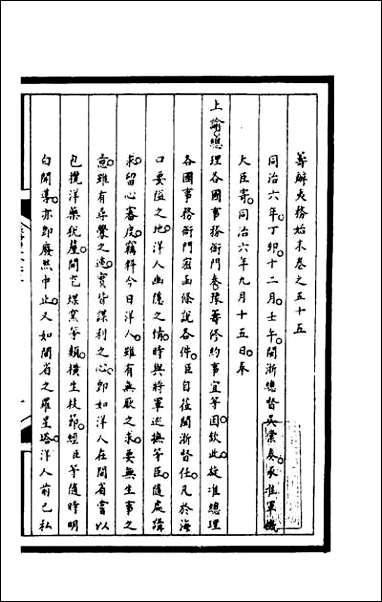 籌辦夷務始末卷之五十五
同治六年丁卯十二月壬午閩浙總督吳棠奏承准軍機
大臣寄同治六年九月十五日奉
上諭總理各國事務衙門奏豫籌修約事宜等因欽此旋准總理
各國事務衙門密函條說各件臣自莅閩浙督任凡於海
口要隘之地洋人幽隱之情時與將軍巡撫等臣隨處諏
求留心審度竊料今日洋人雖有無厭之求要無生事之
意雖有尋釁之速實皆謀利之心即如洋人在閩省嘗以
包攬洋藥抗釐開乞煤窯等類橫生枝節經臣等隨時明
白開導亦即廢然中止又如閩省之羅星塔洋人前已私